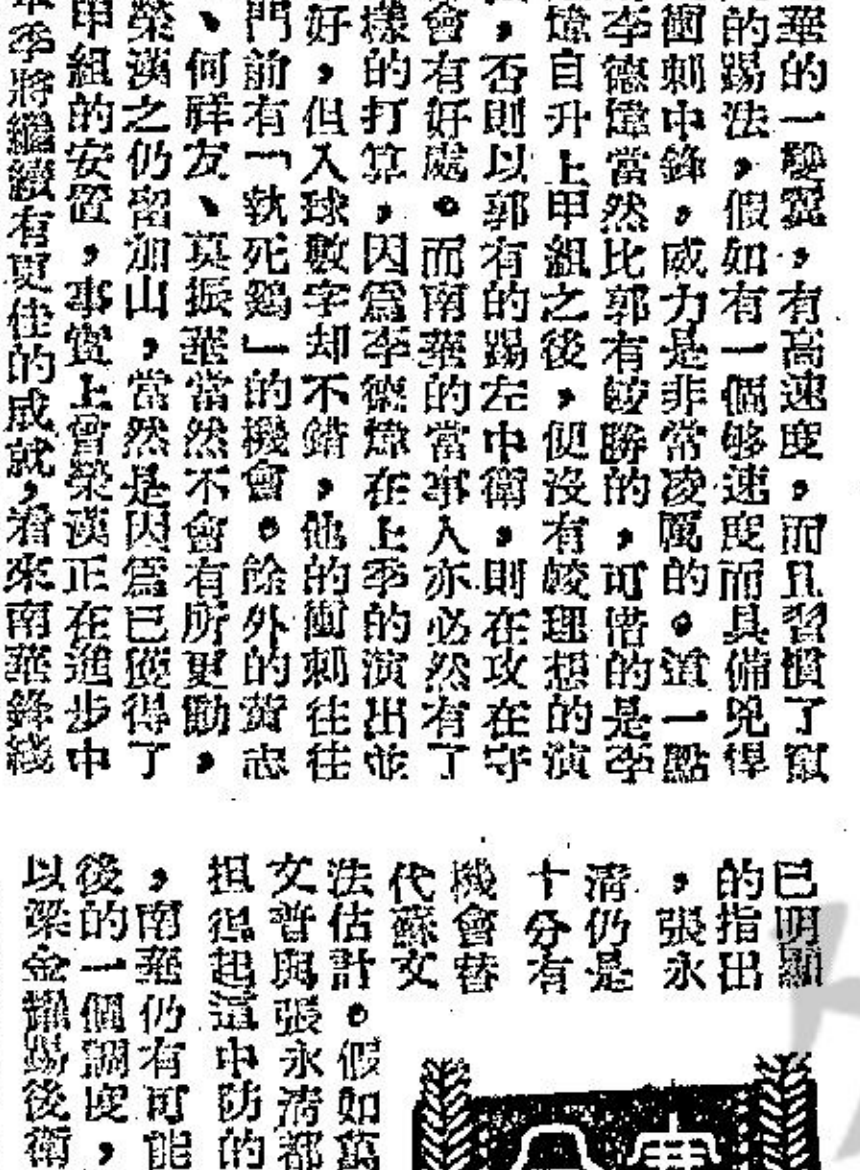 華的一雙翼，有高速度，而且習慣了竄
的踢法，假如有一個够速度而具備兇悍
衝刺中鋒，威力是非常凌厲的。這一點
李德煒當然比郭有較勝的，可惜的是李
煒自升上甲組之後，便沒有較理想的演
，否則以郭有的踢左中衛，則在攻在守
會有好處。而南華的當事人亦必然有了
樣的打算，因爲李德煒在上季的演出並
好，但入球數字却不錯，他的衝刺往往
門前有「執死鷄」的機會。餘外的黃志
、何祥友、莫振華當然不會有所更動，
榮漢之仍留加山，當然是因爲已獲得了
甲組的安置，事實上曾榮漢正在進步中
季將繼續有更佳的成就，看來南華鋒綫
已明顯
的指出
，張永
清仍是
十分有
機會替
代蘇文
法估計。假如萬
文普與張永清都
担得起這中防的
，南華仍有可能
後的一個調度，
以梁金耀踢後衛